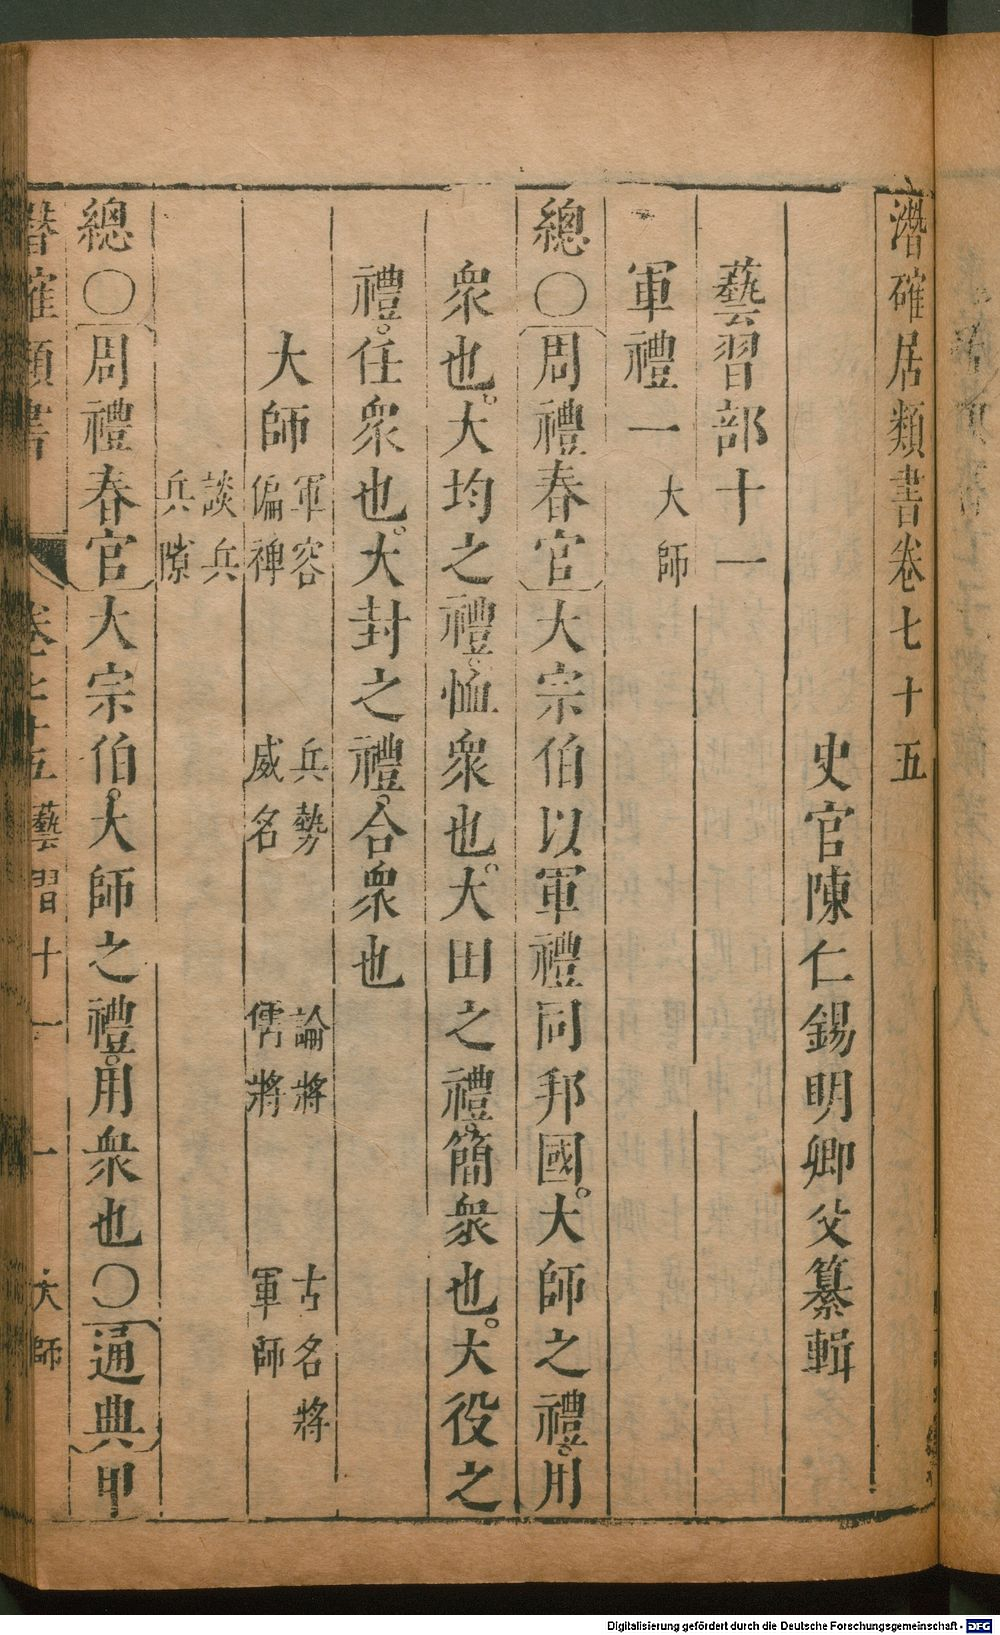 潛確居類書卷七十五
史官陳仁錫明卿父纂輯
藝習部十一
軍禮一 大師
總〇周禮春官大宗伯以軍禮同邦國。大師之禮。用
衆也。大均之禮。恤衆也。大田之禮。簡衆也。大役之
禮。任衆也。大封之禮。合衆也
大師 軍容 兵勢 論將 古名將
偏裨 威名 儒將 軍師
談兵
兵隙
總〇周禮春官大宗伯。大師之禮。用衆也〇通典甲
潛確類書 卷七十五 藝習十一 一 大師
Digitalisierung gefördert durch die Deutsche Forschungsgemeinschaft - DFG